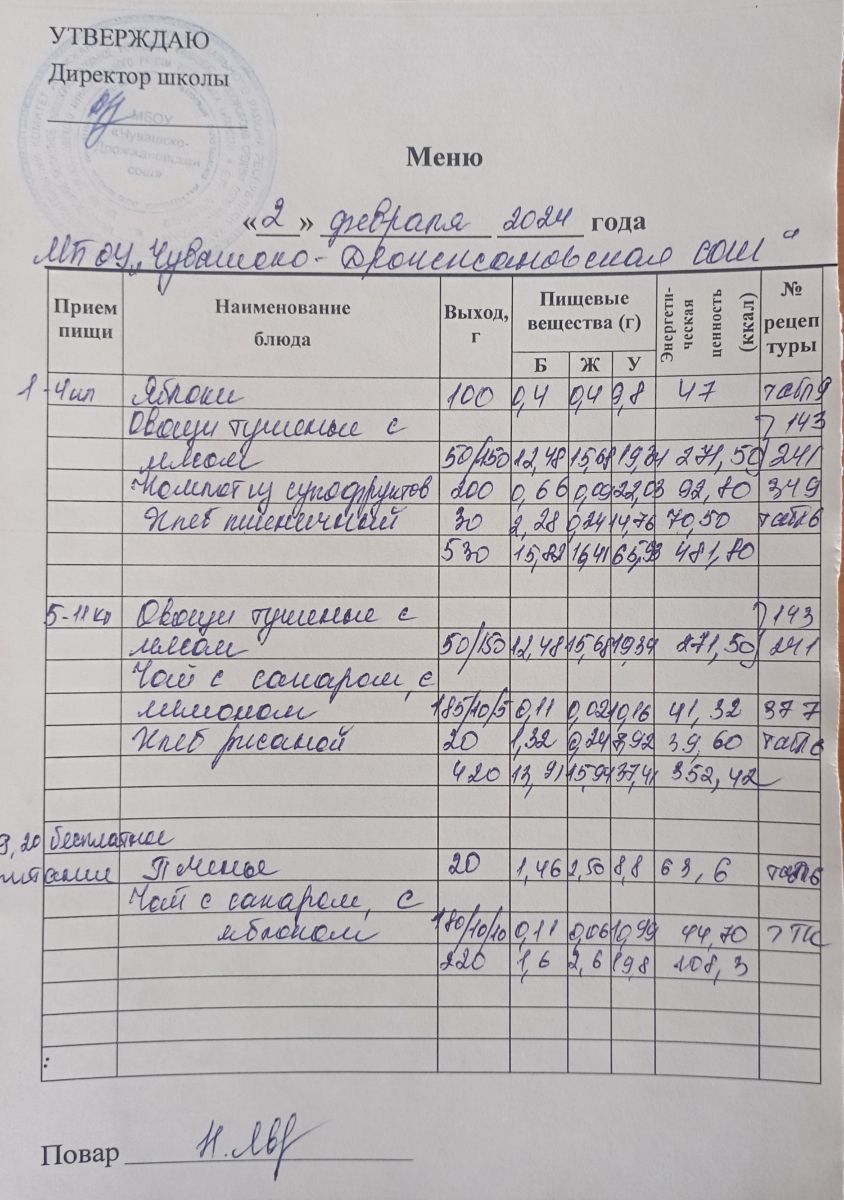 УТВЕРЖДАЮ
Директор школы
МБОУ
«Чувашско-
Дрожжановская
сош»
Меню
« 2 » февраля 2024 года
МБОУ „Чувашско-Дрожжановская СОШ"
Прием пищи Наименование блюда Выход, г Пищевые вещества (г) Энергети-ческая ценность (ккал) № рецептуры
Б Ж У
1-4кл Яблоки 100 0,4 0,4 9,8 47 табл9
Овощи тушеные с } 143
мясом 50/150 12,48 15,68 19,34 271,50 241
Компот из сухофруктов 200 0,66 0,09 22,03 92,80 349
Хлеб пшеничный 30 2,28 0,24 14,76 70,50 табл6
530 15,82 16,41 65,93 481,80
5-11кл Овощи тушеные с } 143
мясом 50/150 12,48 15,68 19,34 271,50 241
Чай с сахаром, с
лимоном 185/10/5 0,11 0,02 10,16 41,32 377
Хлеб ржаной 20 1,32 0,24 7,92 39,60 табл6
420 13,91 15,94 37,41 352,42
3,20 бесплатное
питание Печенье 20 1,46 2,50 8,8 63,6 табл6
Чай с сахаром, с
яблоком 180/10/10 0,11 0,06 10,99 44,70 ТТК
220 1,6 2,6 19,8 108,3
:
Повар